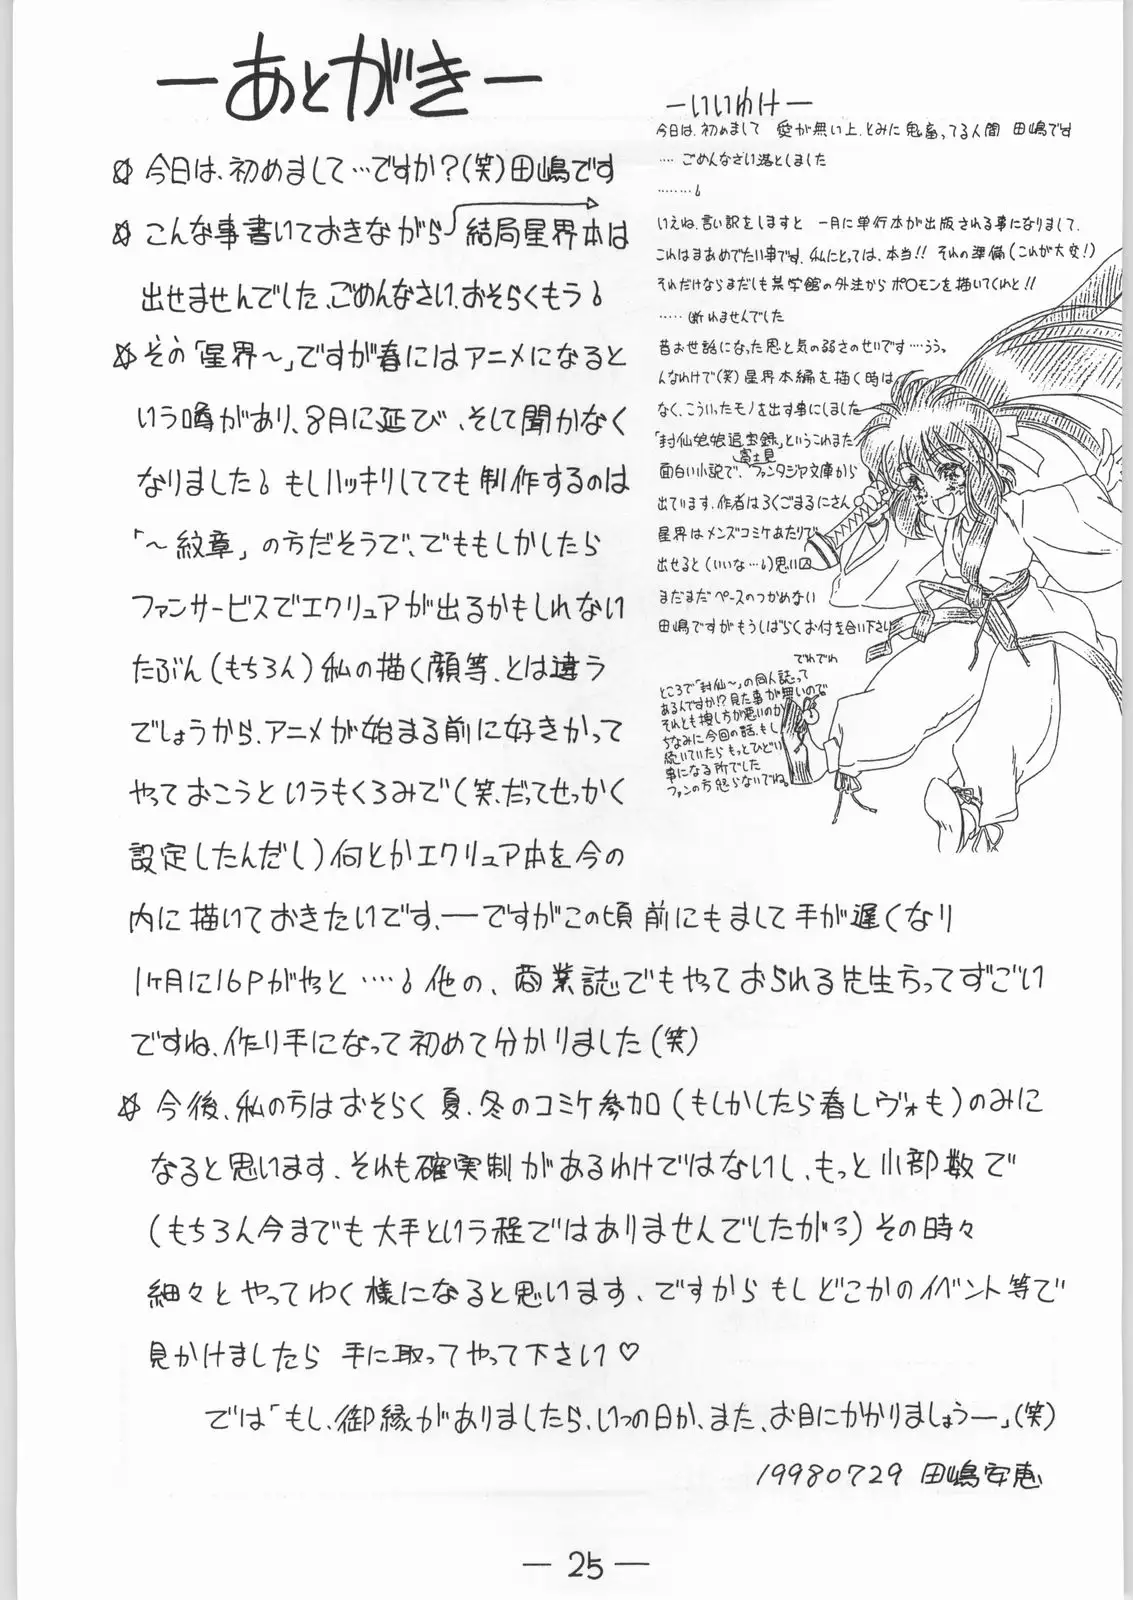 ―あとがき―
☆ 今日は、初めまして…ですか?(笑)田嶋です
☆ こんな事書いておきながら 結局星界本は
出せませんでした、ごめんなさい、おそらくもう
☆ その「星界～」ですが春にはアニメになると
いう噂があり、8月に延び、そして聞かなく
なりました。もしハッキリしてても制作するのは
「～紋章」の方だそうで、でももしかしたら
ファンサービスでエクリュアが出るかもしれない
たぶん(もちろん)私の描く顔等、とは違う
でしょうから、アニメが始まる前に好きかって
やっておこうというもくろみで(笑、だってせっかく
設定したんだし)何とかエクリュア本を今の
内に描いておきたいです、―ですがこの頃前にもまして手が遅くなり
1ヶ月に16Pがやっと……他の、商業誌でもやっておられる先生方ってすごい
ですね、作り手になって初めて分かりました(笑)
☆ 今後、私の方はおそらく夏、冬のコミケ参加(もしかしたら春レヴォも)のみに
なると思います、それも確実制があるわけではないし、もっと小部数で
(もちろん今までも大手という程ではありませんでしたがろ)その時々
細々とやってゆく様になると思います、ですからもしどこかのイベント等で
見かけましたら 手に取ってやって下さい♡
では「もし、御縁がありましたら、いつの日か、また、お目にかかりましょうー」(笑)
19980729 田嶋安恵
―いいわけ―
今日は、初めまして 愛が無い上、とみに鬼畜ってる人間 田嶋です
…… ごめんなさい落としました
………
いえね、言い訳をしますと 一月に単行本が出版される事になりまして、
これはまあめでたい事です、私にとっては、本当!! それの準備(これが大変!)
それだけならまだしも某学館の外法からポ○モンを描いてくれと!!
…… (断れませんでした
昔お世話になった恩と気の弱さのせいです……うう。
んなわけで(笑)星界本編を描く時は
なく、こういったモノを出す事にしました
「封仙娘娘追宝録」というこれまた
面白い小説で、富士見ファンタジア文庫から
出ています、作者はろくごまるにさん
星界はメンズコミケあたりで
出せると(いいな…)思い
まだまだペースのつかめない
田嶋ですがもうしばらくお付き合い下さい
でれでれ
ところで「封仙～」の同人誌って
あるんですか!?見た事が無いので
それとも捜し方が悪いのか
ちなみに今回の話、もし
続いていたらもっとひどい
事になる所でした
ファンの方怒らないでね。
― 25 ―